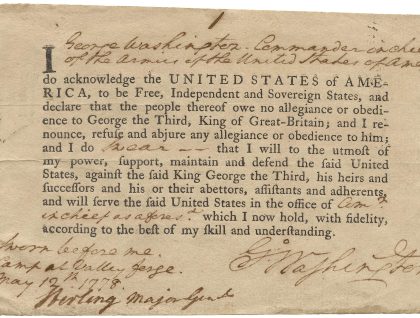 1
I George Washington Commander in chief
of the Armies of the United States of Ame
do acknowledge the UNITED STATES of AME-
RICA, to be Free, Independent and Sovereign States, and
declare that the people thereof owe no allegiance or obedi-
ence to George the Third, King of Great-Britain; and I re-
nounce, refuse and abjure any allegiance or obedience to him;
and I do swear that I will to the utmost of
my power, support, maintain and defend the said United
States, against the said King George the Third, his heirs and
successors and his or their abettors, assistants and adherents,
and will serve the said United States in the office of Comr.
in chief as aforesd. which I now hold, with fidelity,
according to the best of my skill and understanding.
Sworn before me
Camp at Valley Forge
May 12th 1778
Stirling Major Genl
Go Washington